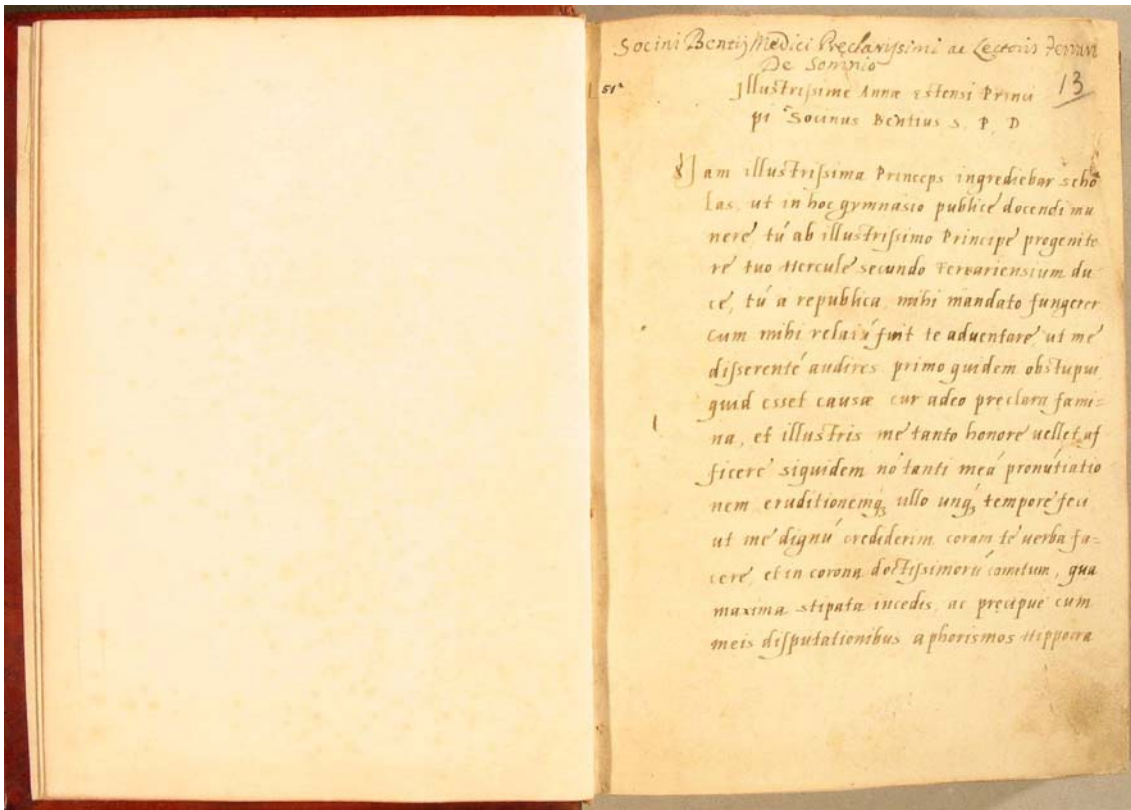 Socini Bentij Medici Preclarissimi ac Lectoris Ferrari
De Somnio
13
51ᵃ
Illustrissime Annæ Estensi Princi
pi Socinus Bentius S. P. D
Iam illustrissima Princeps ingrediebar scho
las, ut in hoc gymnasio publice docendi mu
nere tú ab illustrissimo Principe progenito
re tuo Hercule secundo Ferrariensium du
ce, tú a republica mihi mandato fungerer
cum mihi relatú fuit te aduentare ut me
disserenté audires primo quidem obstupui
quid esset causæ cur adeo preclara fæmi=
na, et illustris me tanto honore uellet af
ficere siquidem nó tanti meá pronútiatio
nem eruditionemq; ullo unq; tempore feci
ut me dignú crediderim coram te uerba fa=
cere, et in corona doctissimorú comitum, qua
maxima stipata incedis, ac precipue cum
meis disputationibus aphorismos Hippocra